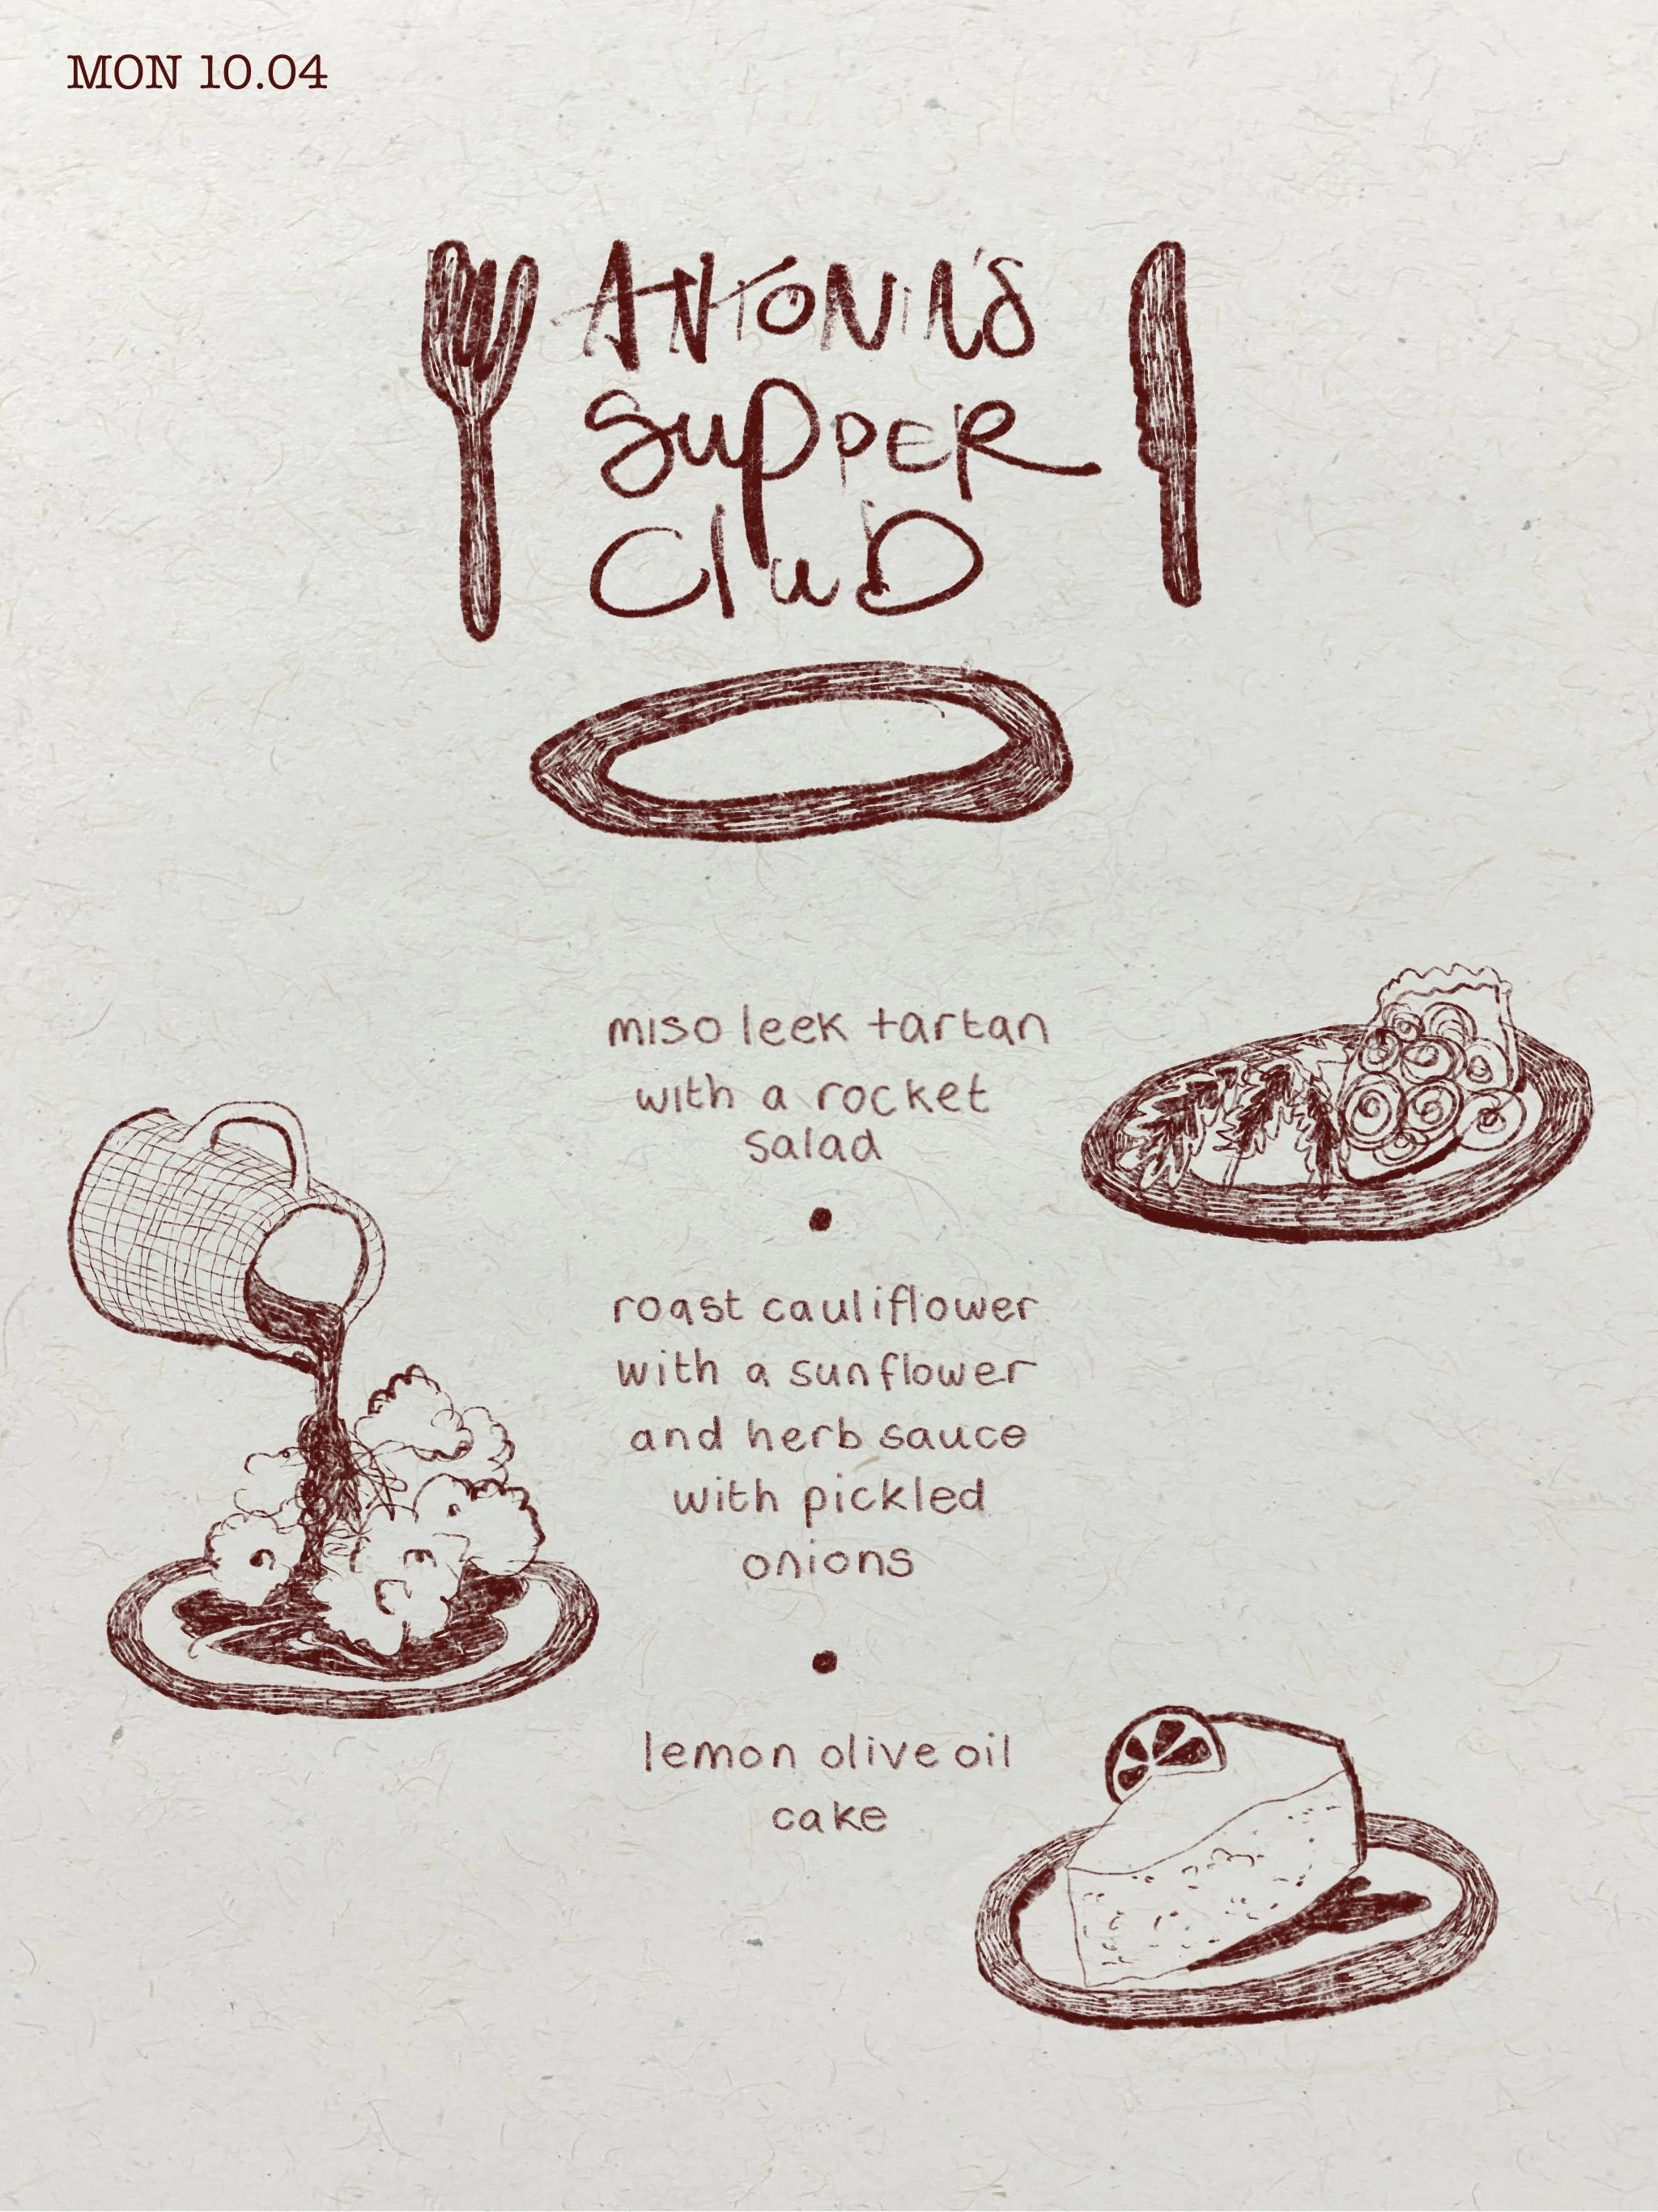 MON 10.04
ANTONIA'S
SUPPER
CLUB
miso leek tartan
with a rocket
salad
roast cauliflower
with a sunflower
and herb sauce
with pickled
onions
lemon olive oil
cake